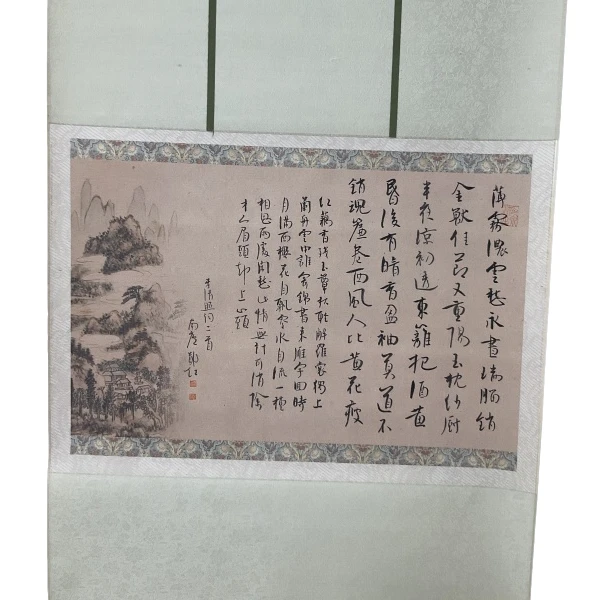 薄霧濃雲愁永晝瑞腦銷
金獸佳節又重陽玉枕紗厨
半夜涼初透東籬把酒黃
昏後有暗香盈袖莫道不
銷魂簾卷西風人比黃花瘦
紅藕香殘玉簟秋輕解羅裳獨上
蘭舟雲中誰寄錦書來雁字回時
月滿西樓花自飄零水自流一種
相思兩處閑愁此情無計可消除
才下眉頭却上心頭
李清照詞二首